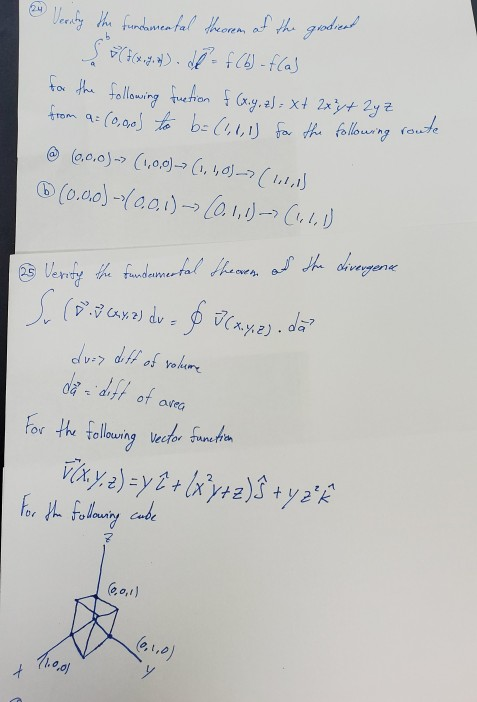 24 Verify the fundamental theorem of the gradient
∫ₐᵇ ∇⃗(f(x,y,z)) · dl⃗ = f(b) - f(a)
For the following fuction f(x,y,z) = x + 2x²y + 2yz
from a = (0,0,0) to b = (1,1,1) for the following route
ⓐ (0,0,0) → (1,0,0) → (1,1,0) → (1,1,1)
ⓑ (0,0,0) → (0,0,1) → (0,1,1) → (1,1,1)
25 Verify the fundamental theorem of the divergence
∫ᵥ (∇⃗·v⃗(x,y,z) dv = ∮ v⃗(x,y,z) · da⃗
dv => diff of volume
da⃗ = diff of area
For the following vector function
v⃗(x,y,z) = y î + (x²y+z) ĵ + y z² k̂
For the following cube
z
(0,0,1)
(0,1,0)
(1,0,0)
x
y